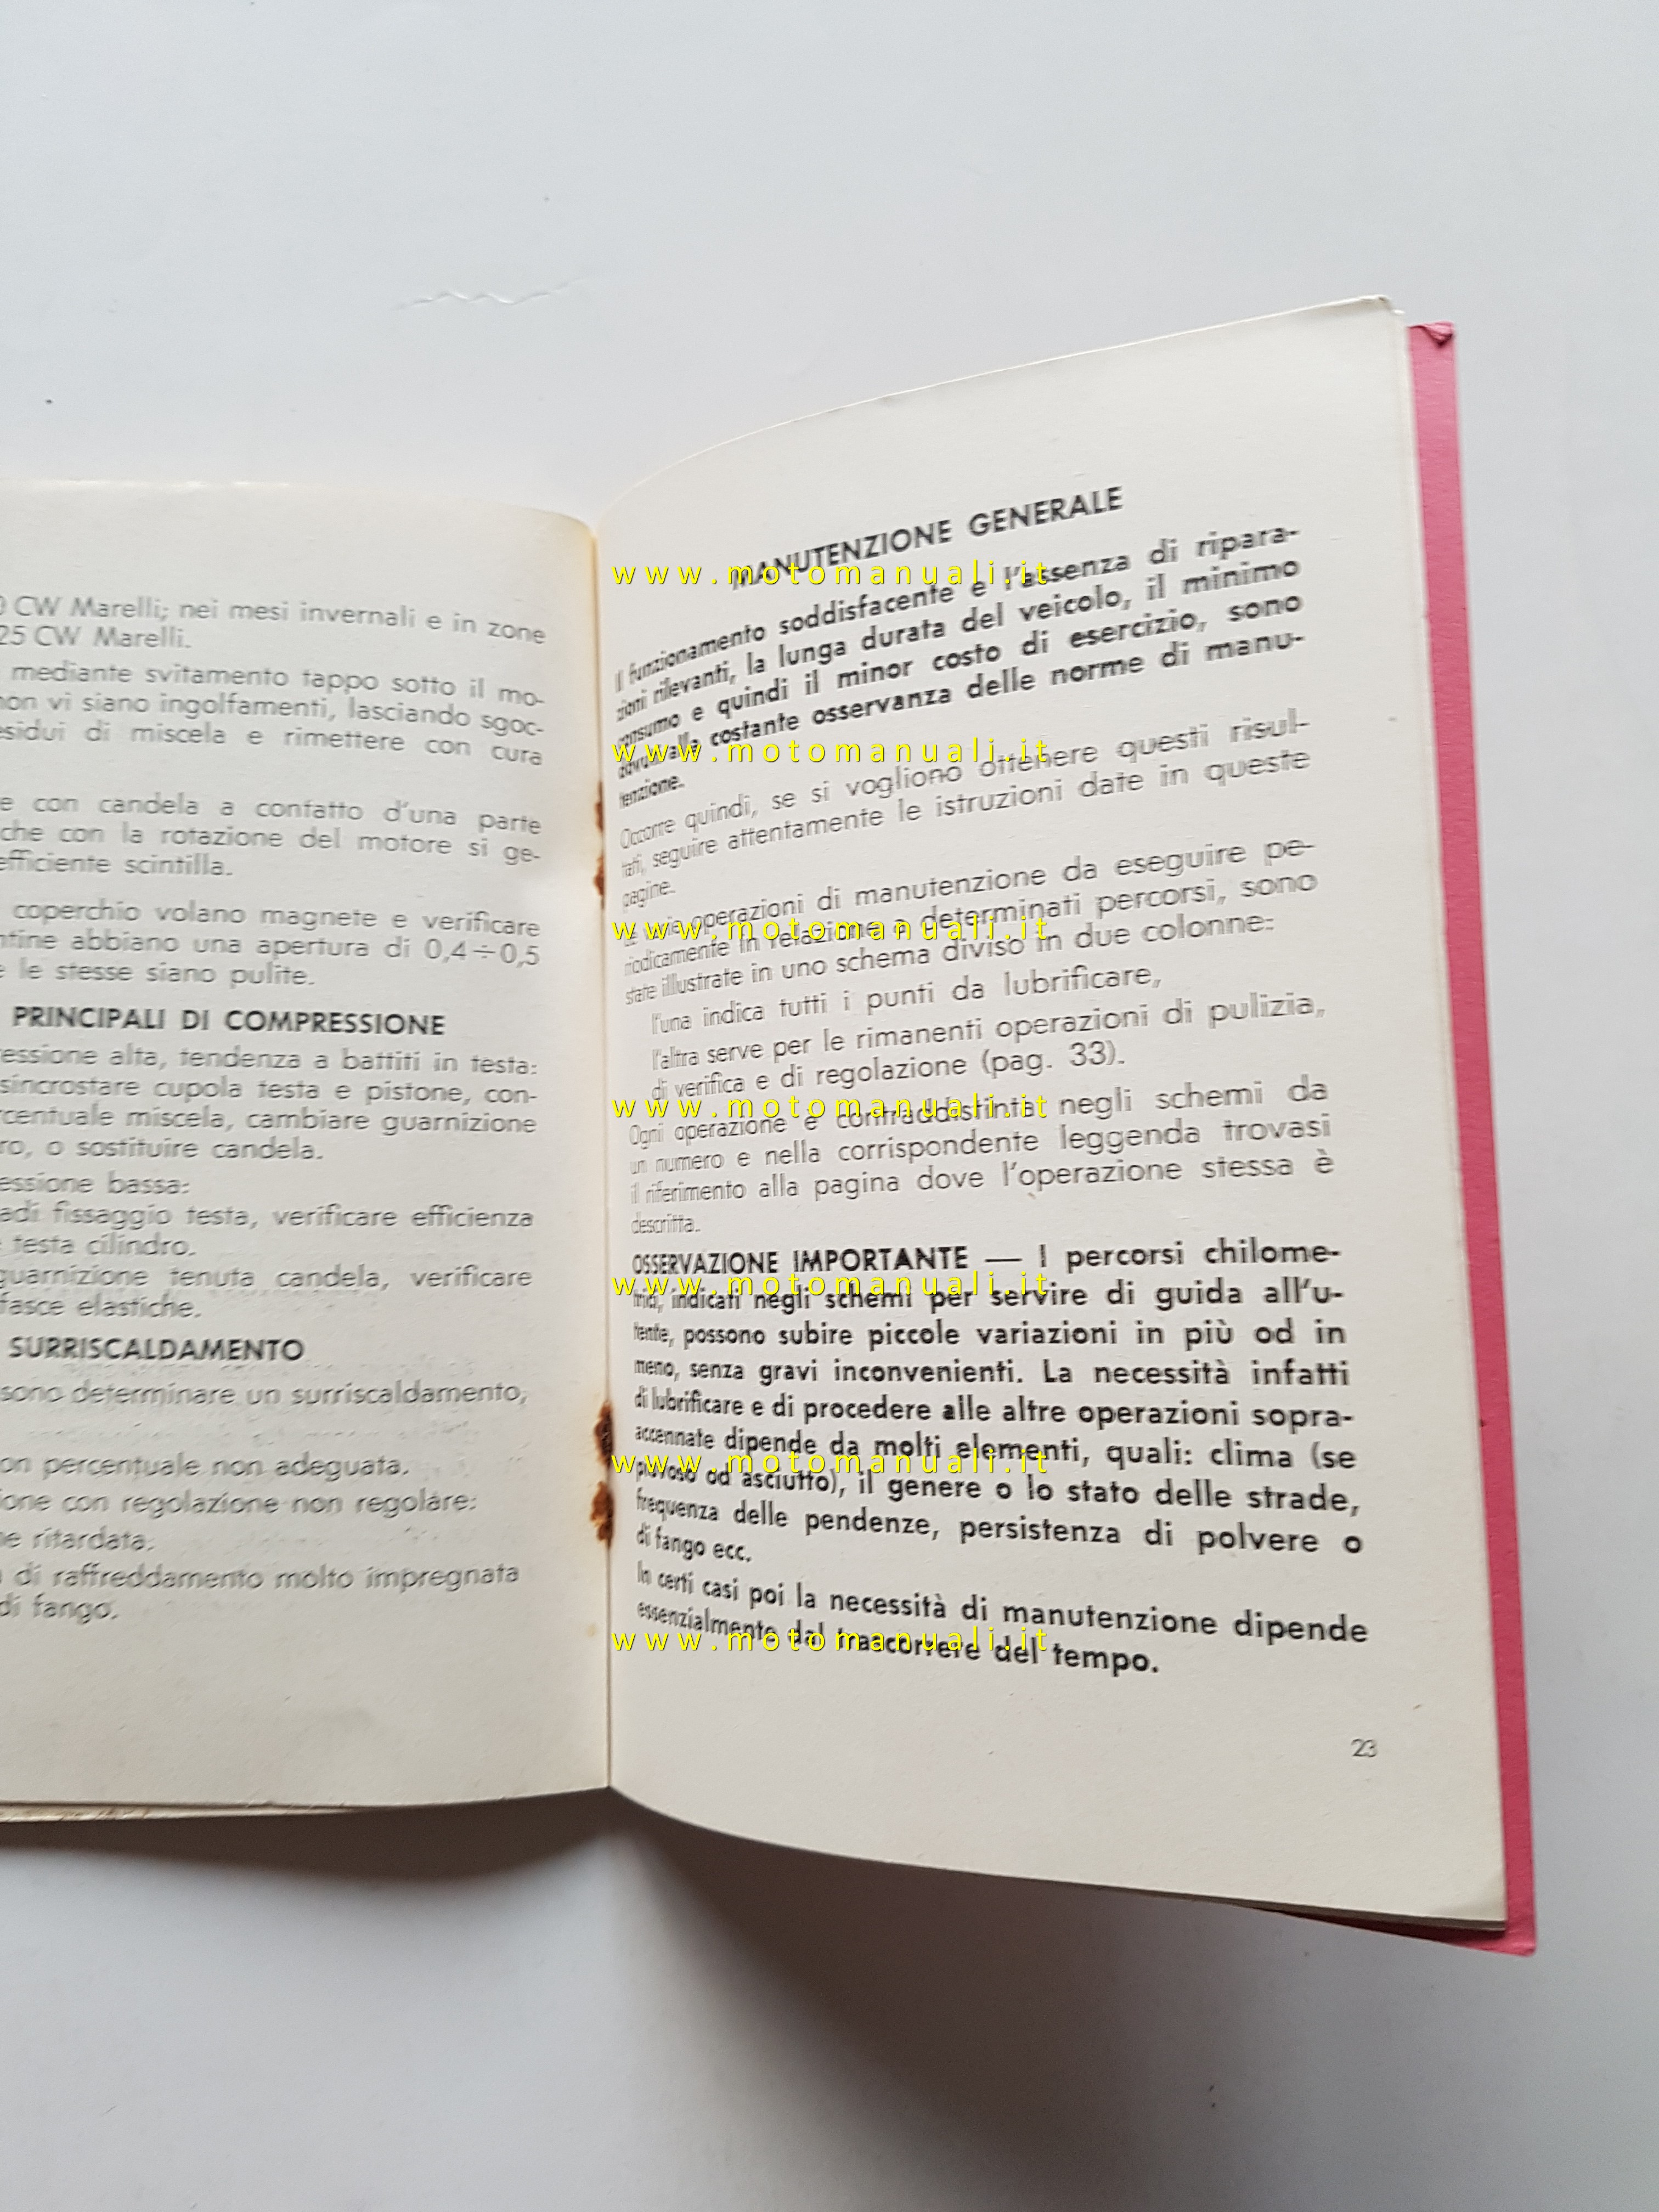 CW Marelli; nei mesi invernali e in zone
25 CW Marelli.
mediante svitamento tappo sotto il mo-
non vi siano ingolfamenti, lasciando sgoc-
di miscela e rimettere con cura
con candela a contatto d'una parte
che con la rotazione del motore si ge-
efficiente scintilla.
coperchio volano magnete e verificare
abbiano una apertura di 0,4÷0,5
le stesse siano pulite.
PRINCIPALI DI COMPRESSIONE
alta, tendenza a battiti in testa:
cupola testa e pistone, con-
miscela, cambiare guarnizione
o sostituire candela.
bassa:
fissaggio testa, verificare efficienza
testa cilindro.
guarnizione tenuta candela, verificare
fasce elastiche.
SURRISCALDAMENTO
determinare un surriscaldamento,
percentuale non adeguata.
con regolazione non regolare:
ritardata.
di raffreddamento molto impregnata
di fango.
MANUTENZIONE GENERALE
Il funzionamento soddisfacente e l'assenza di ripara-
zioni rilevanti, la lunga durata del veicolo, il minimo
consumo e quindi il minor costo di esercizio, sono
dovuti alla costante osservanza delle norme di manu-
tenzione.
Occorre quindi, se si vogliono ottenere questi risul-
tati, seguire attentamente le istruzioni date in queste
pagine.
Le varie operazioni di manutenzione da eseguire pe-
riodicamente in relazione a determinati percorsi, sono
state illustrate in uno schema diviso in due colonne:
l'una indica tutti i punti da lubrificare,
l'altra serve per le rimanenti operazioni di pulizia,
di verifica e di regolazione (pag. 33).
Ogni operazione è contraddistinta negli schemi da
un numero e nella corrispondente leggenda trovasi
il riferimento alla pagina dove l'operazione stessa è
descritta.
OSSERVAZIONE IMPORTANTE — I percorsi chilome-
trici, indicati negli schemi per servire di guida all'u-
tente, possono subire piccole variazioni in più od in
meno, senza gravi inconvenienti. La necessità infatti
di lubrificare e di procedere alle altre operazioni sopra-
accennate dipende da molti elementi, quali: clima (se
piovoso od asciutto), il genere o lo stato delle strade,
frequenza delle pendenze, persistenza di polvere o
di fango ecc.
In certi casi poi la necessità di manutenzione dipende
essenzialmente dal trascorrere del tempo.
23
www.motomanuali.it
www.motomanuali.it
www.motomanuali.it
www.motomanuali.it
www.motomanuali.it
www.motomanuali.it
www.motomanuali.it